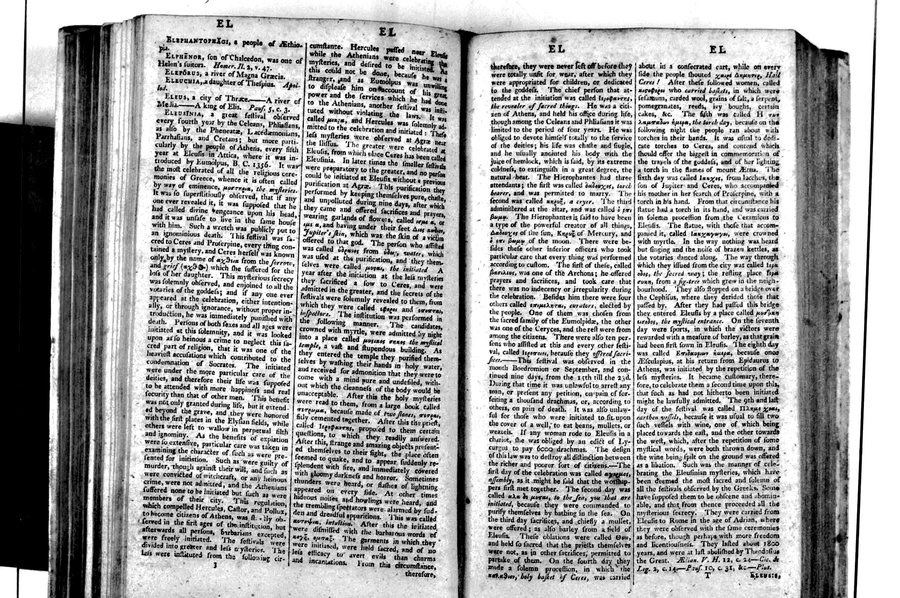 EL
ELEPHANTOPHAGI, a people of Æthio-
pia.
ELPHĒNOR, son of Chalcedon, was one of
Helen's suitors. Homer. Il. 2, v. 47.
ELEPORUS, a river of Magna Græcia.
ELEUCHIA, a daughter of Thespius. Apol-
lod.
ELEUS, a city of Thrace.—A river of
Media—A king of Elis. Paus. 5, c. 3.
ELEUSINIA, a great festival observed
every fourth year by the Celeans, Phliasians,
as also by the Pheneatæ, Lacedæmonians,
Parrhasians, and Cretans; but more parti-
cularly by the people of Athens, every fifth
year at Eleusis in Attica, where it was in-
troduced by Eumolpus, B. C. 1356. It was
the most celebrated of all the religious cere-
monies of Greece, whence it is often called
by way of eminence, μυστηρια, the mysteries.
It was so superstitiously observed, that if any
one ever revealed it, it was supposed that he
had called divine vengeance upon his head,
and it was unsafe to live in the same house
with him. Such a wretch was publicly put to
an ignominious death. This festival was sa-
cred to Ceres and Proserpine, every thing con-
tained a mystery, and Ceres herself was known
only by the name of αχθεια from the sorrow,
and grief (αχθος) which she suffered for the
loss of her daughter. This mysterious secrecy
was solemnly observed, and enjoined to all the
votaries of the goddess; and if any one ever
appeared at the celebration, either intention-
ally, or through ignorance, without proper in-
troduction, he was immediately punished with
death. Persons of both sexes and all ages were
initiated at this solemnity, and it was looked
upon as so heinous a crime to neglect this sa-
cred part of religion, that it was one of the
heaviest accusations which contributed to the
condemnation of Socrates. The initiated
were under the more particular care of the
deities, and therefore their life was supposed
to be attended with more happiness and real
security than that of other men. This benefit
was not only granted during life, but it extend-
ed beyond the grave, and they were honored
with the first places in the Elysian fields, while
others were left to wallow in perpetual filth
and ignominy. As the benefits of expiation
were so extensive, particular care was taken in
examining the character of such as were pre-
sented for initiation. Such as were guilty of
murder, though against their will, and such as
were convicted of witchcraft, or any heinous
crime, were not admitted, and the Athenians
suffered none to be initiated but such as were
members of their city. This regulation,
which compelled Hercules, Castor, and Pollux,
to become citizens of Athens, was strictly ob-
served in the first ages of the institution, but
afterwards all persons, barbarians excepted,
were freely initiated. The festivals were
divided into greater and less mysteries. The
less were instituted from the following cir-
3
EL
cumstance. Hercules passed near Eleusis
while the Athenians were celebrating the
mysteries, and desired to be initiated. As
this could not be done, because he was a
stranger, and as Eumolpus was unwilling
to displease him on account of his great
power and the services which he had done
to the Athenians, another festival was insti-
tuted without violating the laws. It was
called μικρα, and Hercules was solemnly ad-
mitted to the celebration and initiated. These
less mysteries were observed at Agræ near
the Ilissus. The greater were celebrated at
Eleusis, from which place Ceres has been called
Eleusinia. In later times the smaller festivals
were preparatory to the greater, and no person
could be initiated at Eleusis without a previous
purification at Agræ. This purification they
performed by keeping themselves pure, chaste,
and unpolluted during nine days, after which
they came and offered sacrifices and prayers,
wearing garlands of flowers, called
and having under their feet
Jupiter's skin, which was the skin of a victim
offered to that god. The person who assisted
was called υδρανος from υδωρ, water, which
was used at the purification, and they them-
selves were called μυσται, the initiated. A
year after the initiation at the less mysteries
they sacrificed a sow to Ceres, and were
admitted in the greater, and the secrets of the
festivals were solemnly revealed to them, from
which they were called εφοροι and εποπται,
inspectors. The institution was performed in
the following manner. The candidates,
crowned with myrtle, were admitted by night
into a place called μυστικος σηκος the mystical
temple, a vast and stupendous building. As
they entered the temple they purified them-
selves by washing their hands in holy water,
and received for admonition that they were to
come with a mind pure and undefiled, with-
out which the cleanness of the body would be
unacceptable. After this the holy mysteries
were read to them, from a large book called
πετρωμα, because made of two stones, πετραι,
fitly cemented together. After this the priest,
called Ιεροφαντης, proposed to them certain
questions, to which they readily answered.
After this, strange and amazing objects present-
ed themselves to their sight, the place often
seemed to quake, and to appear suddenly re-
splendent with fire, and immediately covered
with gloomy darkness and horror. Sometimes
thunders were heard, or flashes of lightning
appeared on every side. At other times
hideous noises and howlings were heard, and
the trembling spectators were alarmed by sud-
den and dreadful apparitions. This was called
αυτοψια, intuition. After this the initiated
were dismissed with the barbarous words of
κογξ, ομπαξ. The garments in which they
were initiated, were held sacred, and of no
less efficacy to avert evils than charms
and incantations. From this circumstance,
therefore,
EL
therefore, they were never left off before they
were totally unfit for wear, after which they
were appropriated for children, or dedicated
to the goddess. The chief person that at-
tended at the initiation was called Ιεροφαντης,
the revealer of sacred things. He was a citi-
zen of Athens, and held his office during life,
though among the Celeans and Phliasians it was
limited to the period of four years. He was
obliged to devote himself totally to the service
of the deities; his life was chaste and single,
and he usually anointed his body with the
juice of hemlock, which is said, by its extreme
coldness, to extinguish in a great degree, the
natural heat. The Hierophantes had three
attendants; the first was called δαδουχος, torch
bearer, and was permitted to marry. The
second was called κηρυξ, a cryer. The third
administered at the altar, and was called ὁ επι
βωμω. The Hierophantes is said to have been
a type of the powerful creator of all things,
Δαδουχος of the sun, Κηρυξ of Mercury, and
ὁ επι βωμω of the moon. There were be-
sides these other inferior officers who took
particular care that every thing was performed
according to custom. The first of these, called
βασιλευς, was one of the Archons; he offered
prayers and sacrifices, and took care that
there was no indecency or irregularity during
the celebration. Besides him there were four
others called επιμεληται, curators, elected by
the people. One of them was chosen from
the sacred family of the Eumolpidæ, the other
was one of the Ceryces, and the rest were from
among the citizens. There were also ten per-
sons who assisted at this and every other festi-
val, called Ιεροποιοι, because they offered sacri-
fices.—This festival was observed in the
month Boedromion or September, and con-
tinued nine days, from the 15th till the 23d.
During that time it was unlawful to arrest any
man, or present any petition, on pain of for-
feiting a thousand drachmas, or, according to
others, on pain of death. It was also unlaw-
ful for those who were initiated to sit upon
the cover of a well, to eat beans, mullets, or
weazels. If any woman rode to Eleusis in a
chariot, she was obliged by an edict of Ly-
curgus to pay 6000 drachmas. The design
of this law was to destroy all distinction between
the richer and poorer sort of citizens.—The
first day of the celebration was called αγυρμος,
assembly, as it might be said that the worship-
pers first met together. The second day was
called αλαδε μυσται, to the sea, you that are
initiated, because they were commanded to
purify themselves by bathing in the sea. On
the third day sacrifices, and chiefly a mullet,
were offered; as also barley from a field of
Eleusis. These oblations were called Θυα,
and held so sacred that the priests themselves
were not, as in other sacrifices, permitted to
partake of them. On the fourth day they
made a solemn procession, in which the
καλαθιον, holy basket of Ceres, was carried
EL
about in a consecrated cart, while on every
side the people shouted χαιρε Δημητερ, Hail
Ceres! After these followed women, called
κιστοφοροι who carried baskets, in which were
sesamum, carded wool, grains of salt, a serpent,
pomegranates, reeds, ivy boughs, certain
cakes, &c. The fifth was called Η των
λαμπαδων ημερα, the torch day, because on the
following night the people ran about with
torches in their hands. It was usual to dedi-
cate torches to Ceres, and contend which
should offer the biggest in commemoration of
the travels of the goddess, and of her lighting
a torch in the flames of mount Ætna. The
sixth day was called Ιακχος, from Iacchus, the
son of Jupiter and Ceres, who accompanied
his mother in her search of Proserpine, with a
torch in his hand. From that circumstance his
statue had a torch in its hand, and was carried
in solemn procession from the Ceramicus to
Eleusis. The statue, with those that accom-
panied it, called Ιακχαγωγοι, were crowned
with myrtle. In the way nothing was heard
but singing and the noise of brazen kettles, as
the votaries danced along. The way through
which they issued from the city was called Ιερα
οδος, the sacred way; the resting place Ιερα
συκη, from a fig-tree which grew in the neigh-
bourhood. They also stopped on a bridge over
the Cephisus, where they derided those that
passed by. After they had passed this bridge
they entered Eleusis by a place called μυστικη
εισοδος, the mystical entrance. On the seventh
day were sports, in which the victors were
rewarded with a measure of barley, as that grain
had been first sown in Eleusis. The eighth day
was called Επιδαυριων ημερα, because once
Æsculapius, at his return from Epidaurus to
Athens, was initiated by the repetition of the
less mysteries. It became customary, there-
fore, to celebrate them a second time upon this,
that such as had not hitherto been initiated
might be lawfully admitted. The 9th and last
day of the festival was called Πλημοχοαι,
earthen vessels, because it was usual to fill two
such vessels with wine, one of which being
placed towards the east, and the other towards
the west, which, after the repetition of some
mystical words, were both thrown down, and
the wine being spilt on the ground was offered
as a libation. Such was the manner of cele-
brating the Eleusinian mysteries, which have
been deemed the most sacred and solemn of
all the festivals observed by the Greeks. Some
have supposed them to be obscene and abomin-
able, and that from thence proceeded all the
mysterious secrecy. They were carried from
Eleusis to Rome in the age of Adrian, where
they were observed with the same ceremonies
as before, though perhaps with more freedom
and licentiousness. They lasted about 1800
years, and were at last abolished by Theodosius
the Great. Ælian. V. H. 12, c. 24.—Cic. de
Leg. 2, c. 14.—Paus. 10, c. 31, &c.—Plut.
T ELEUSIS,